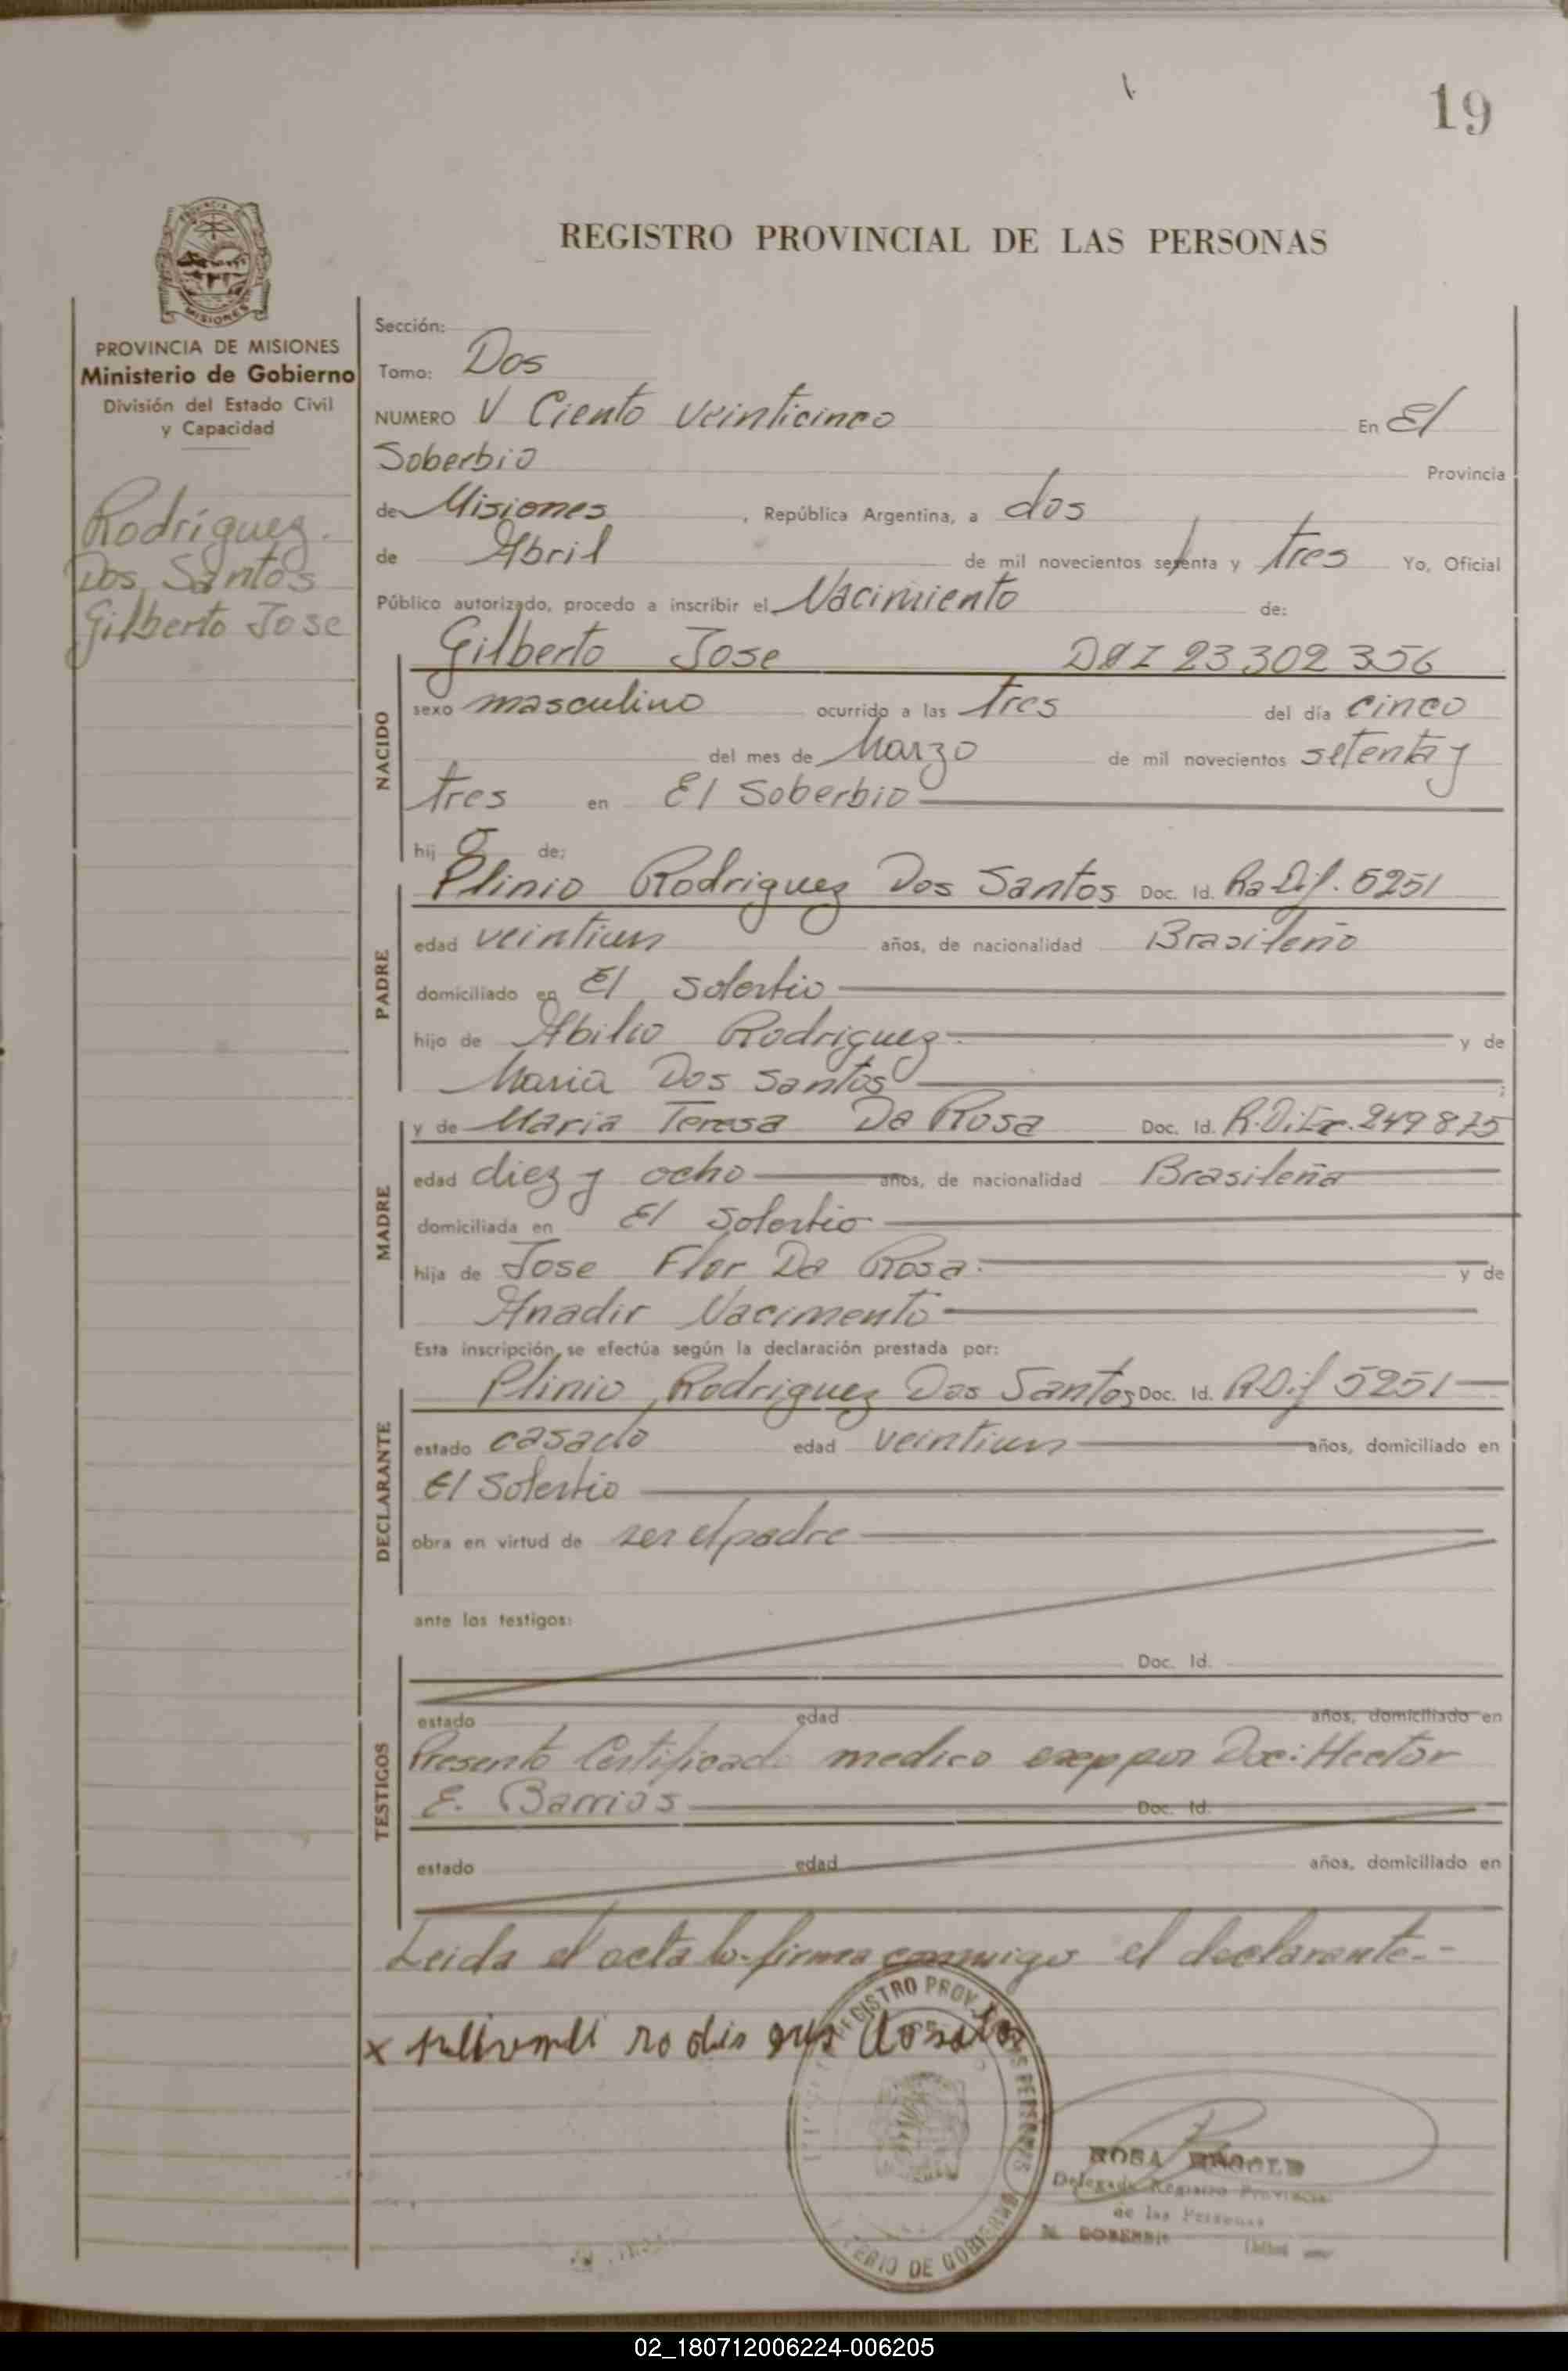 19
REGISTRO PROVINCIAL DE LAS PERSONAS
MISIONES
PROVINCIA DE MISIONES
Ministerio de Gobierno
División del Estado Civil
y Capacidad
Rodríguez
Dos Santos
Gilberto Jose
Sección:
Tomo: Dos
NUMERO V Ciento Veinticinco En El
Soberbio Provincia
de Misiones, República Argentina, a dos
de Abril de mil novecientos setenta y tres Yo, Oficial
Público autorizado, procedo a inscribir el Nacimiento de:
NACIDO
Gilberto Jose DNI 23 302 356
sexo masculino ocurrido a las tres del día cinco
del mes de Marzo de mil novecientos setenta y
tres en El Soberbio
hij o de:
PADRE
Plinio Rodriguez Dos Santos Doc. Id. Ra Dif. 5251
edad veintiun años, de nacionalidad Brasileño
domiciliado en El Soberbio
hijo de Abilio Rodriguez y de
Maria Dos Santos ;
MADRE
y de Maria Teresa Da Rosa Doc. Id. 249875
edad diez y ocho años, de nacionalidad Brasileña
domiciliada en El Soberbio
hija de Jose Flor Da Rosa y de
Anadir Nacimento
Esta inscripción, se efectúa según la declaración prestada por:
DECLARANTE
Plinio Rodriguez Dos Santos Doc. Id. R Dif 5251
estado casado edad veintiun años, domiciliado en
El Soberbio
obra en virtud de ser el padre
ante los testigos:
TESTIGOS
Doc. Id.
estado edad años, domiciliado en
Presento Certificado medico exep por Doc: Hector
E. Barrios Doc. Id.
estado edad años, domiciliado en
Leida el acta lo firma conmigo el declarante.-
REGISTRO PROV. DE LAS PERSONAS
MINISTERIO DE GOBIERNO
ROSA
Delegada Registro Provincial
de las Personas
EL SOBERBIO
02_180712006224-006205